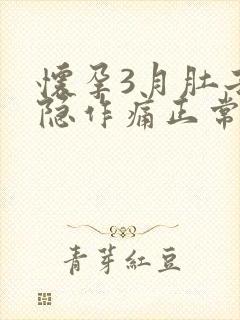 懷孕3月肚子
隐作痛正常
青芽紅豆